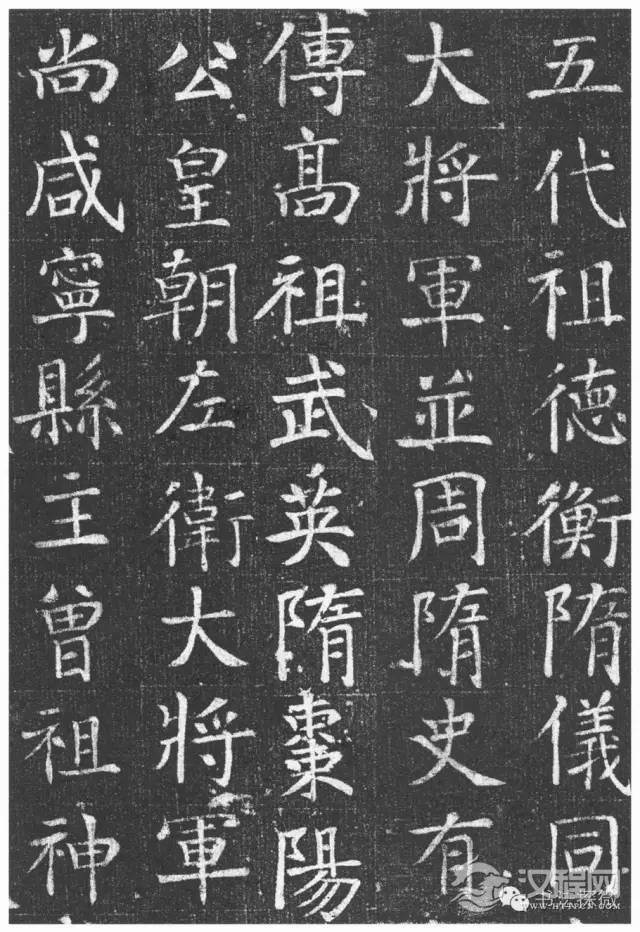 五代祖德衡隋儀同
大將軍並周隋史有
傳高祖武英隋棗陽
公皇朝左衛大將軍
尚咸寧縣主曾祖神
汉程网
书法探微
WWW.HTTPCN.COM